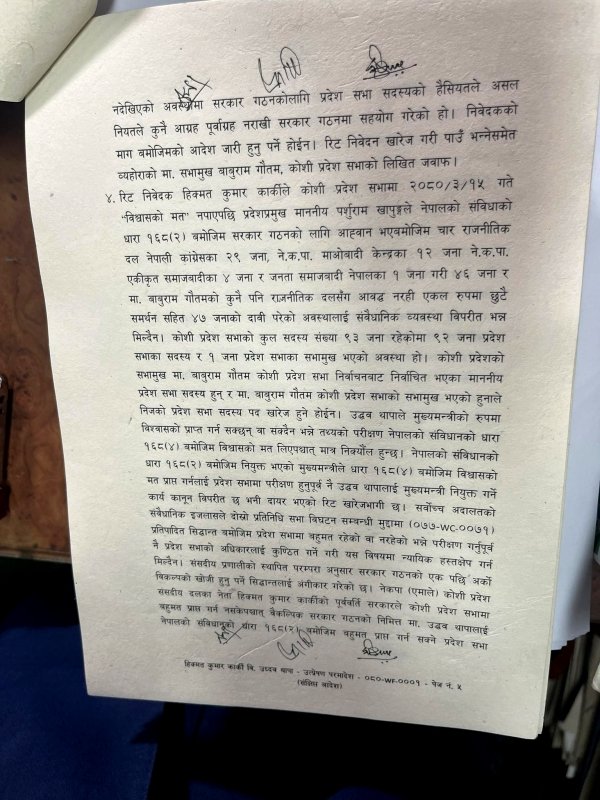 नदेखिएको अवस्थामा सरकार गठनकोलागि प्रदेश सभा सदस्यको हैसियतले असल
नियतले कुनै आग्रह पूर्वाग्रह नराखी सरकार गठनमा सहयोग गरेको हो। निवेदकको
माग बमोजिमको आदेश जारी हुनु पर्ने होईन। रिट निवेदन खारेज गरी पाउँ भन्नेसमेत
व्यहोराको मा. सभामुख बाबुराम गौतम, कोशी प्रदेश सभाको लिखित जवाफ।
४. रिट निवेदक हिक्मत कुमार कार्कीले कोशी प्रदेश सभामा २०८०/३/१५ गते
"विश्वासको मत" नपाएपछि प्रदेशप्रमुख माननीय पर्शुराम खापुङ्गले नेपालको संविधाको
धारा १६८(२) बमोजिम सरकार गठनको लागि आह्वान भएबमोजिम चार राजनीतिक
दल नेपाली कांग्रेसका २९ जना, ने.क.पा. माओबादी केन्द्रका १२ जना ने.क.पा.
एकीकृत समाजबादीका ४ जना र जनता समाजबादी नेपालका १ जना गरी ४६ जना र
मा. बाबुराम गौतमको कुनै पनि राजनीतिक दलसँग आवद्ध नरही एकल रुपमा छुटै
समर्थन सहित ४७ जनाको दावी परेको अवस्थालाई संवैधानिक व्यवस्था विपरीत भन्न
मिल्दैन। कोशी प्रदेश सभाको कुल सदस्य संख्या ९३ जना रहेकोमा ९२ जना प्रदेश
सभाका सदस्य र १ जना प्रदेश सभाका सभामुख भएको अवस्था हो। कोशी प्रदेशको
सभामुख मा. बाबुराम गौतम कोशी प्रदेश सभा निर्वाचनबाट निर्वाचित भएका माननीय
प्रदेश सभा सदस्य हुन् र मा. बाबुराम गौतम कोशी प्रदेश सभाको सभामुख भएको हुनाले
निजको प्रदेश सभा सदस्य पद खारेज हुने होईन। उद्धव थापाले मुख्यमन्त्रीको रुपमा
विश्वासको प्राप्त गर्न सक्छन् वा सक्दैन भन्ने तथ्यको परीक्षण नेपालको संविधानको धारा
१६८(४) बमोजिम विश्वासको मत लिएपश्चात् मात्र निर्क्यौल हुन्छ। नेपालको संविधानको
धारा १६८(२) बमोजिम नियुक्त भएको मुख्यमन्त्रीले धारा १६८(४) बमोजिम विश्वासको
मत प्राप्त गर्नलाई प्रदेश सभामा परीक्षण हुनुपूर्व नै उद्धव थापालाई मुख्यमन्त्री नियुक्त गर्ने
कार्य कानून विपरीत छ भनी दायर भएको रिट खारेजभागी छ। सर्वोच्च अदालतको
संवैधानिक इजलासले दोस्रो प्रतिनिधि सभा विघटन सम्वन्धी मुद्दामा (०७७-WC-००७१)
प्रतिपादित सिद्धान्त बमोजिम प्रदेश सभामा बहुमत रहेको वा नरहेको भन्ने परीक्षण गर्नुपूर्व
नै प्रदेश सभाको अधिकारलाई कुण्ठित गर्ने गरी यस विषयमा न्यायिक हस्तक्षेप गर्न
मिल्दैन। संसदीय प्रणालीको स्थापित परम्परा अनुसार सरकार गठनको एक पछि अर्को
बिकल्पको खोजी हुनु पर्ने सिद्धान्तलाई अंगीकार गरेको छ। नेकपा (एमाले) कोशी प्रदेश
संसदीय दलका नेता हिक्मत कुमार कार्कीको पूर्ववर्ती सरकारले कोशी प्रदेश सभामा
बहुमत प्राप्त गर्न नसकेपश्चात् बैकल्पिक सरकार गठनको निमित्त मा. उद्धव थापालाई
नेपालको संविधानको धारा १६८(२) बमोजिम बहुमत प्राप्त गर्न सक्ने प्रदेश सभा
हिक्मत कुमार कार्की वि. उध्दव थापा - उत्प्रेषण परमादेश - ०८०-WF-०००१ - पेज नं. ५
(संक्षिप्त आदेश)